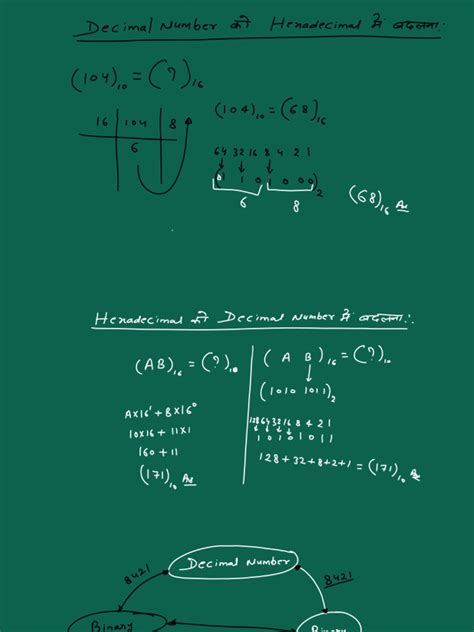 Decimal Number को Hexadecimal में बदलना:
(104)₁₀ = (?)₁₆
16 | 104 | 8
6
(104)₁₀ = (68)₁₆
64 32 16 8 4 2 1
(0 1 1 0 1 0 0 0)₂
6 8
(68)₁₆ Ans
Hexadecimal को Decimal Number में बदलना:
(AB)₁₆ = (?)₁₀
A×16¹ + B×16⁰
10×16 + 11×1
160 + 11
(171)₁₀ Ans
(A B)₁₆ = (?)₁₀
(1010 1011)₂
128 64 32 16 8 4 2 1
1 0 1 0 1 0 1 1
128+32+8+2+1 = (171)₁₀ Ans
Decimal Number
8421
8421
Binary
Binary